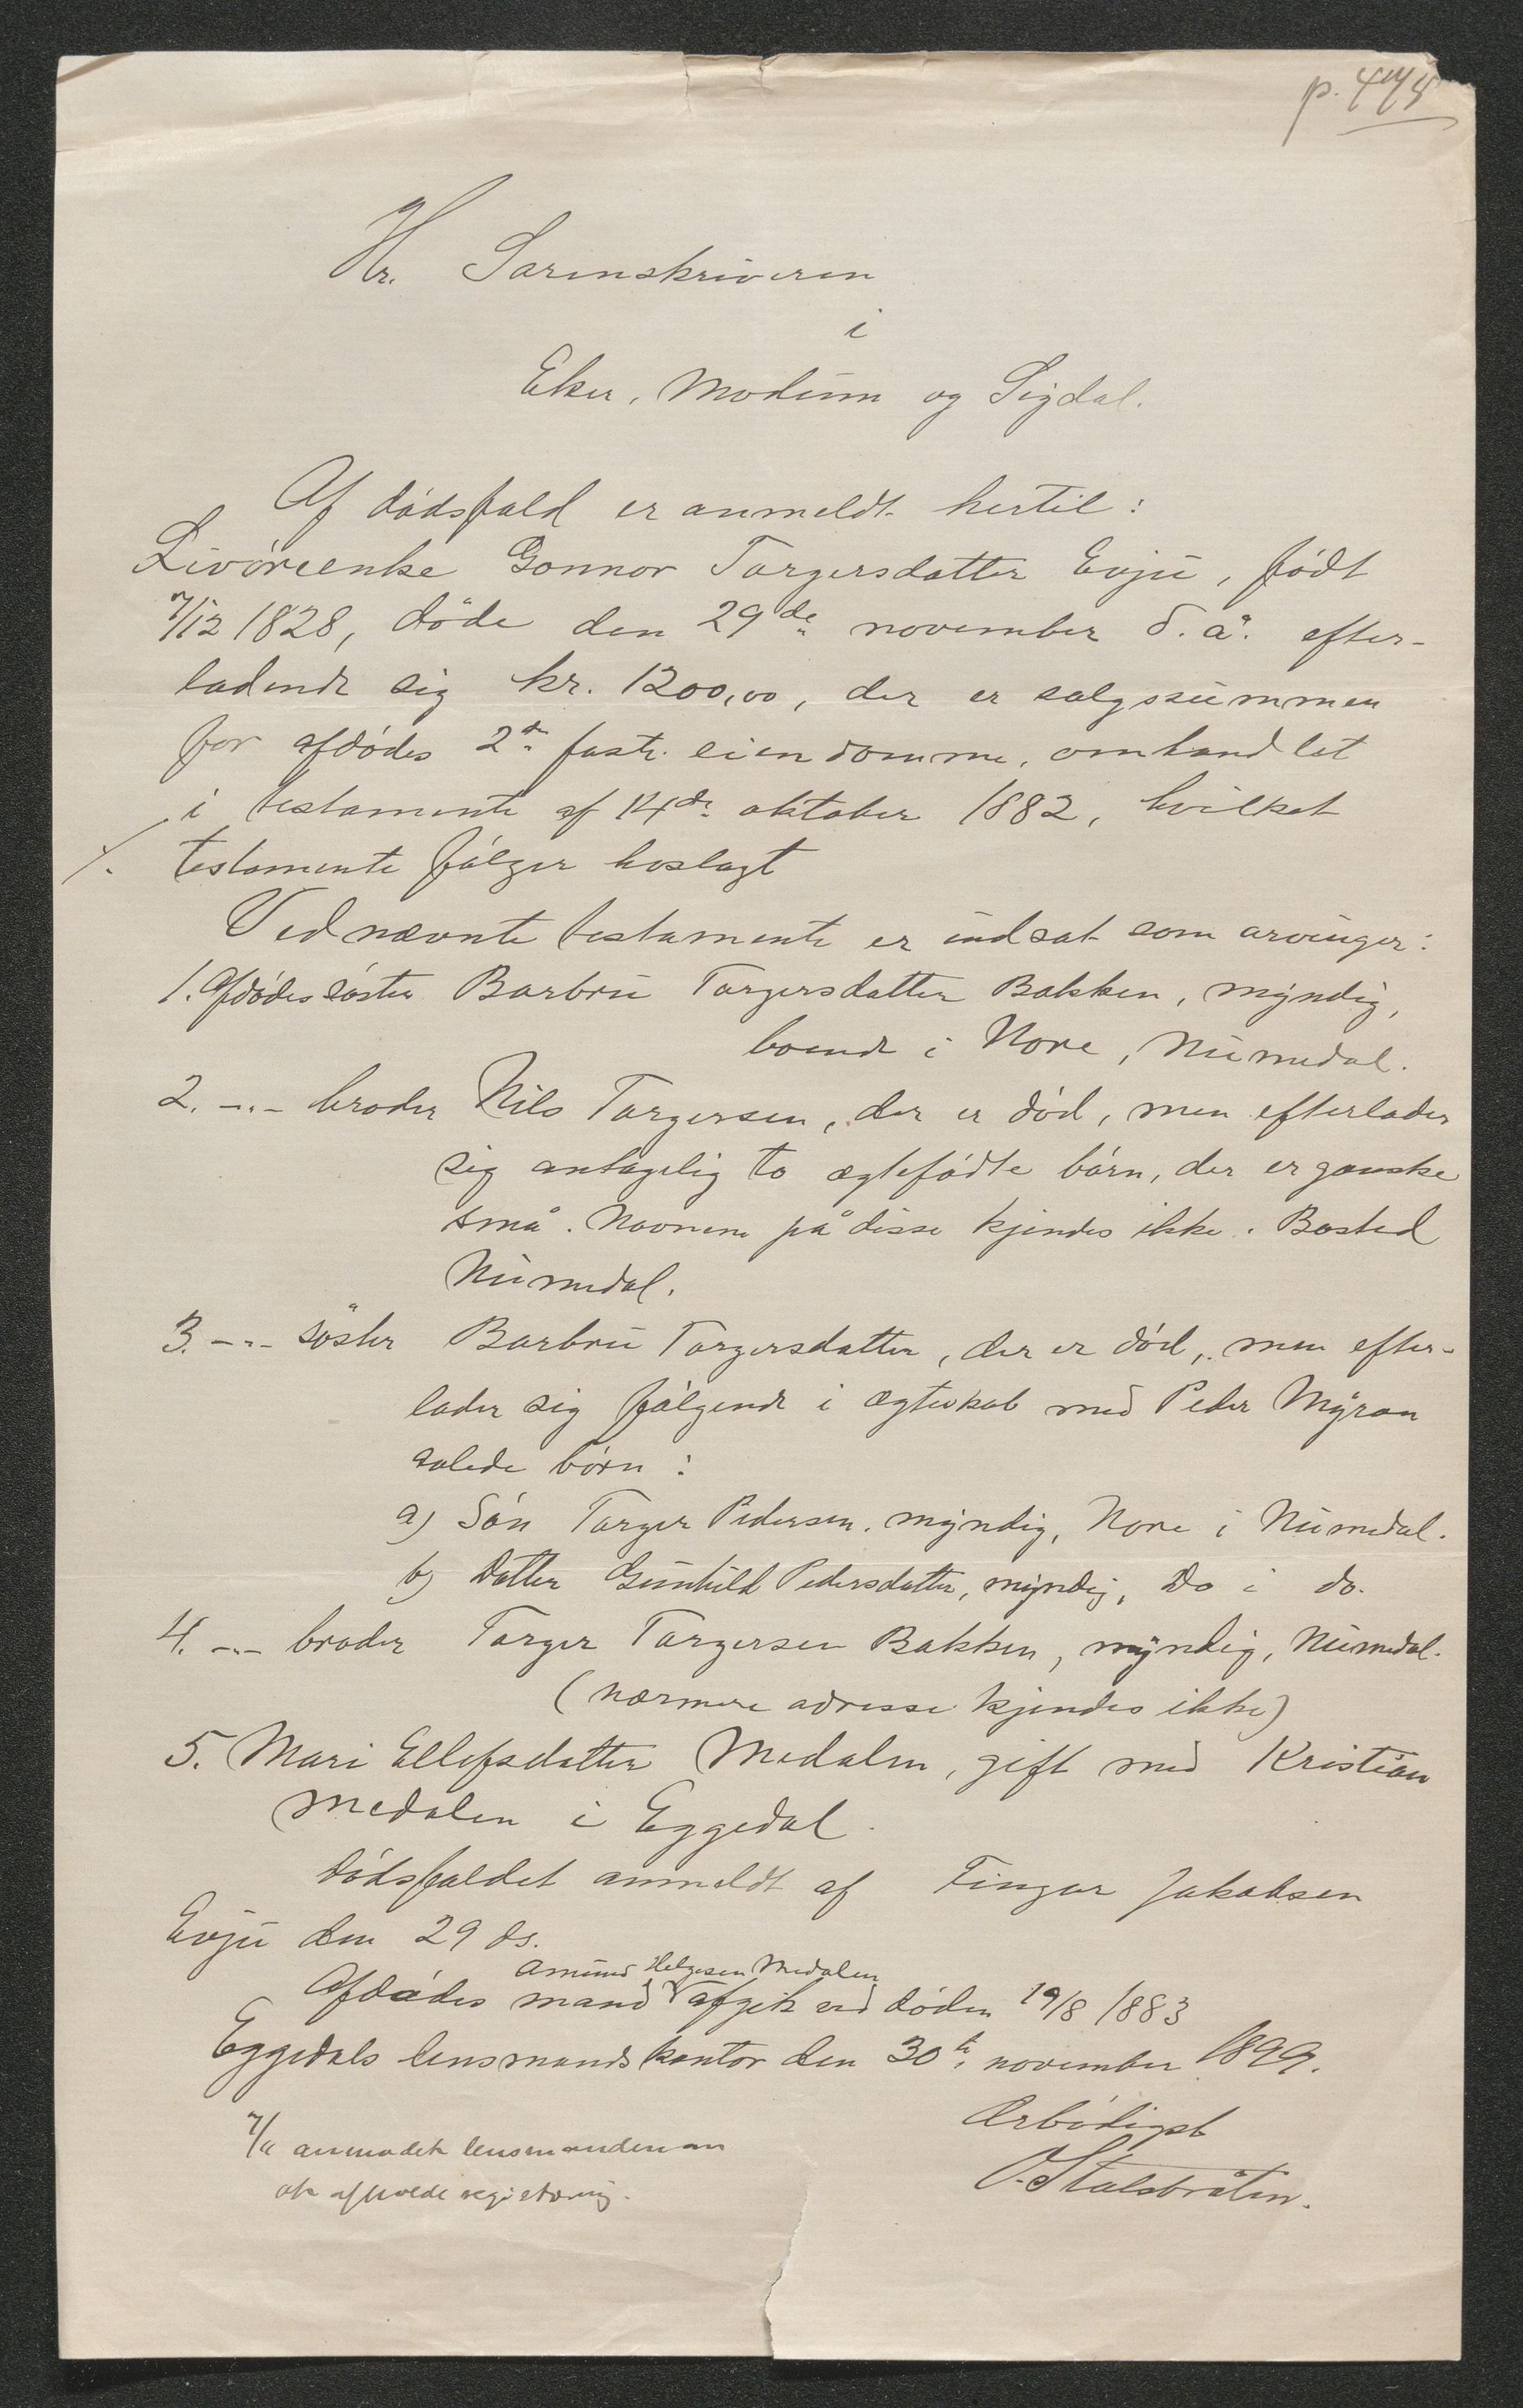 p. 448
Hr. Sorenskriveren
i
Eker, Modum og Sigdal.
Af dødsfald er anmeldt hertil:
Livøreenke Gonnor Torgersdatter Evju, født
7/12 1828, døde den 29de november d. å. efter-
ladende sig kr. 1200,00, der er salgssummen
for afdødes 2de faste eiendomme, omhandlet
i testamente af 14de oktober 1882, hvilket
./. testamente følger hoslagt
Ved nævnte testamente er indsat som arvinger:
1. Afdødes søster Barbru Torgersdatter Bakken, myndig,
boende i Nore, Numedal.
2. -"- broder Nils Torgersen, der er død, men efterlader
sig antagelig to ægtefødte børn, der er ganske
små. Navnene på disse kjendes ikke. Bosted
Numedal.
3. -"- søster Barbru Torgersdatter, der er død, men efter-
lader sig følgende i ægteskab med Peder Myran
avlede børn:
a) Søn Torger Pedersen, myndig, Nore i Numedal.
b) Datter Gunhild Pedersdatter, myndig, Do i do.
4. -"- broder Torger Torgersen Bakken, myndig, Numedal.
(nærmere adresse kjendes ikke)
5. Mari Ellefsdatter Medalen, gift med Kristian
Medalen i Eggedal.
Dødsfaldet anmeldt af Fingar Jakobsen
Evju den 29 ds.
Amund Helgesen Medalen
Afdødes mand afgik ved døden 19/8 1883
Eggedals lensmandskontor den 30te november 1899.
Ærbødigst
O. Stalsbråten.
anmodet lensmanden om
at afholde registrering.